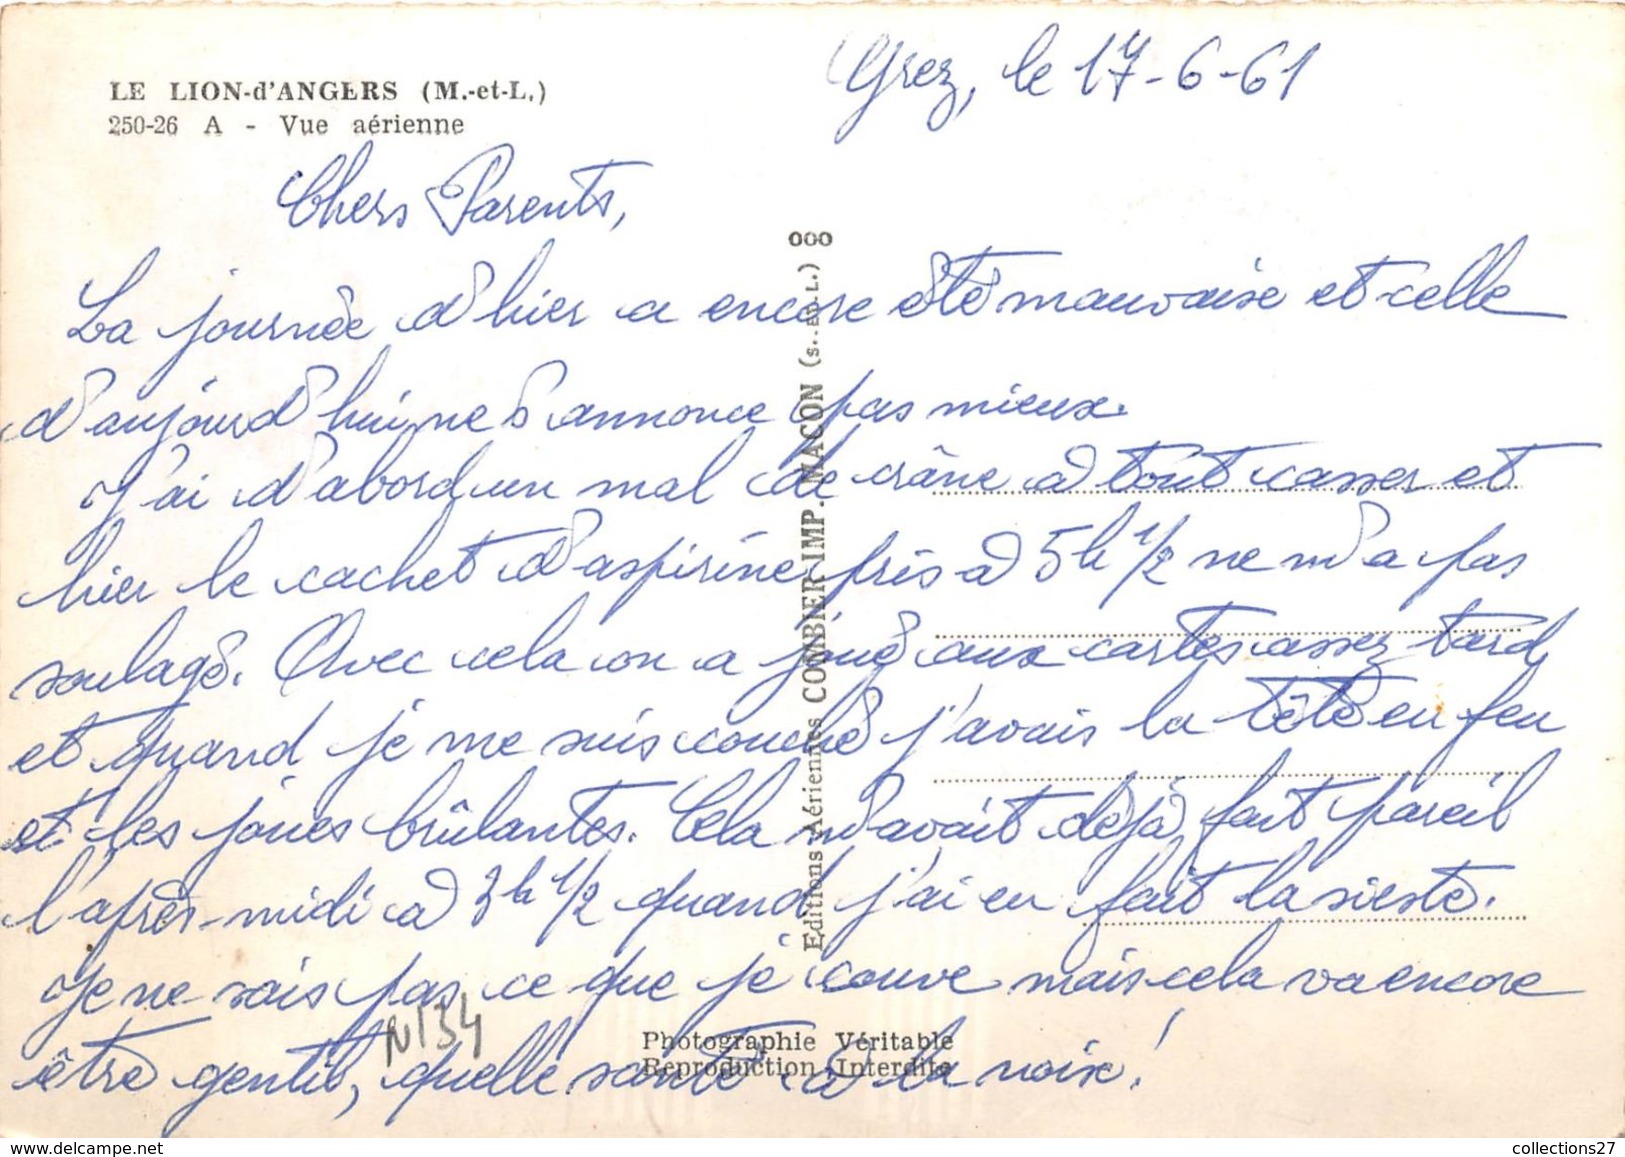 LE LION-d'ANGERS (M.-et-L.)
250-26 A - Vue aérienne
Grez, le 17-6-61
Chers Parents,
La journée d'hier a encore été mauvaise et celle
d'aujourd'hui ne s'annonce pas mieux.
J'ai d'abord un mal de crâne à tout casser et
hier le cachet d'aspirine pris à 5h 1/2 ne m'a pas
soulagé. Avec cela on a joué aux cartes assez tard
et quand je me suis couché j'avais la tête en feu
et les joues brûlantes. Cela m'avait déjà fait pareil
l'après-midi à 3h 1/2 quand j'ai eu fait la sieste.
Je ne sais pas ce que je couve mais cela va encore
être gentil, quelle santé à la noix!
N134
Editions Aériennes COMBIER IMP. MACON (S.-ET-L.) ooo
Photographie Véritable
Reproduction Interdite
collections27